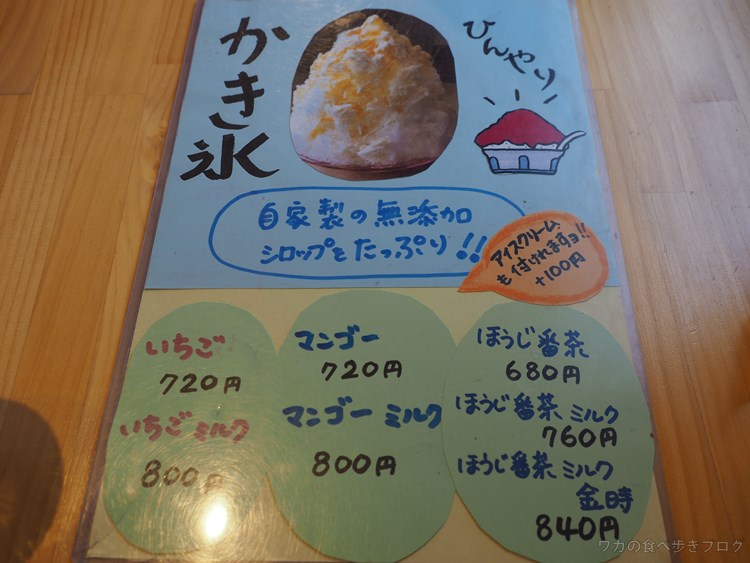 かき氷
ひんやり
自家製の無添加
シロップをたっぷり!!
アイスクリーム
も付けれますョ!!
+100円
いちご
720円
いちごミルク
800円
マンゴー
720円
マンゴーミルク
800円
ほうじ番茶
680円
ほうじ番茶ミルク
760円
ほうじ番茶ミルク
金時
840円
ワカの食べ歩きブログ